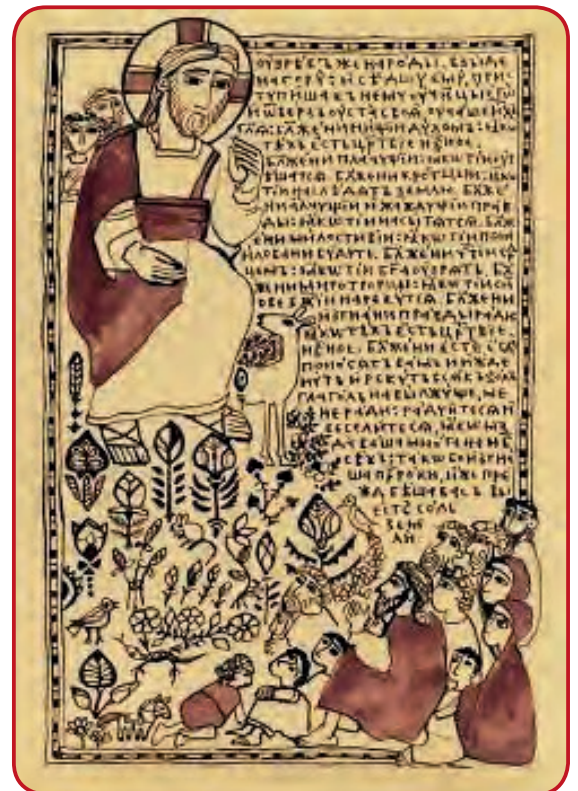 ОУЗРѢВЪ ЖЕ НАРОДЫ, ВЗЫДЕ
НА ГОРУ: И СѢДШУ ЕМУ, ПРИС
ТУПИША КЪ НЕМУ ОУЧН҃ЦЫ ЕГѠ
И ѾВЕРЗЪ ОУСТА СВОѦ, ОУЧАШЕ ИХЪ
ГЛ҃Ѧ: БЛ҃ЖЕНИ НИЩИИ ДУХОМЪ: ꙖКѠ
ТѢХЪ ЕСТЬ ЦР҃ТВІЕ НБ҃НОЕ.
БЛ҃ЖЕНИ ПЛАЧУЩІИ: ꙖКѠ ТІИ ОУТ
ѢШАТСѦ. БЛ҃ЖЕНИ КРОТЦЫИ: ꙖКѠ
ТІИ НАСЛѢДѦТЪ ЗЕМЛЮ. БЛ҃ЖЕ
НИ АЛЧУЩІИ И ЖАЖДУЩІИ ПРАВ
ДЫ: ꙖКѠ ТІИ НАСЫТѦТСѦ. БЛ҃Ж
ЕНИ МИЛОСТИВІИ: ꙖКѠ ТІИ ПОМ
ИЛОВАНИ БУДУТЪ. БЛ҃ЖЕНИ ЧИСТІИ СР
ЦЕМЪ: ꙖКѠ ТІИ БГ҃А ОУЗРѦТЪ. БЛ҃
ЖЕНИ МИРОТВОРЦЫ: ꙖКѠ ТІИ СН
ОВЕ БЖ҃ІИ НАРЕКУТСѦ. БЛ҃ЖЕНИ
ИЗГНАНИ ПРАВДЫ РАДИ
ꙖКѠ ТѢХЪ ЕСТЬ ЦР҃ТВІЕ.
НБ҃НОЕ. БЛ҃ЖЕНИ ЕСТЕ ЕГДА
ПОНОСѦТЪ ВАМЪ И ИЖДЕ
НУТЪ И РЕКУТЪ ВСѦКЪ ЗОЛЪ
ГЛАГОЛЪ НА ВЫ ЛЖУЩЕ, МЕ
НЕ РАДИ: РАДУЙТЕСѦ И
ВЕСЕЛИТЕСѦ, ꙖКѠ МЗ
ДА ВАША МНОГА НА НБ҃
СѢХЪ: ТАКѠ БО ИЗГНА
ША ПРОРОКИ, ИЖЕ ПРЕ
ЖДЕ БѢША ВАСЪ. ВЫ
ЕСТЕ СОЛЬ
ЗЕМ
ЛИ.